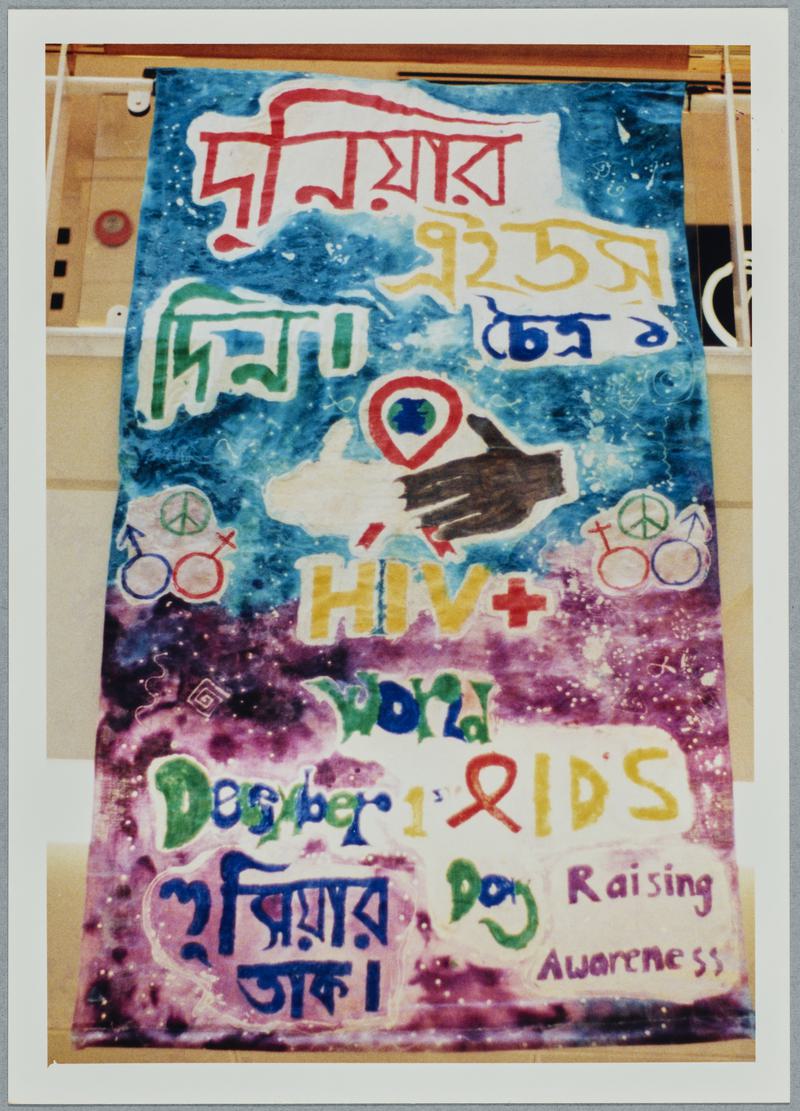 দুনিয়ার
এইডস
দিন।
চৈত্র ১
HIV+
World
December 1st AIDS
হুসিয়ার
তাক।
Day Raising
Awareness